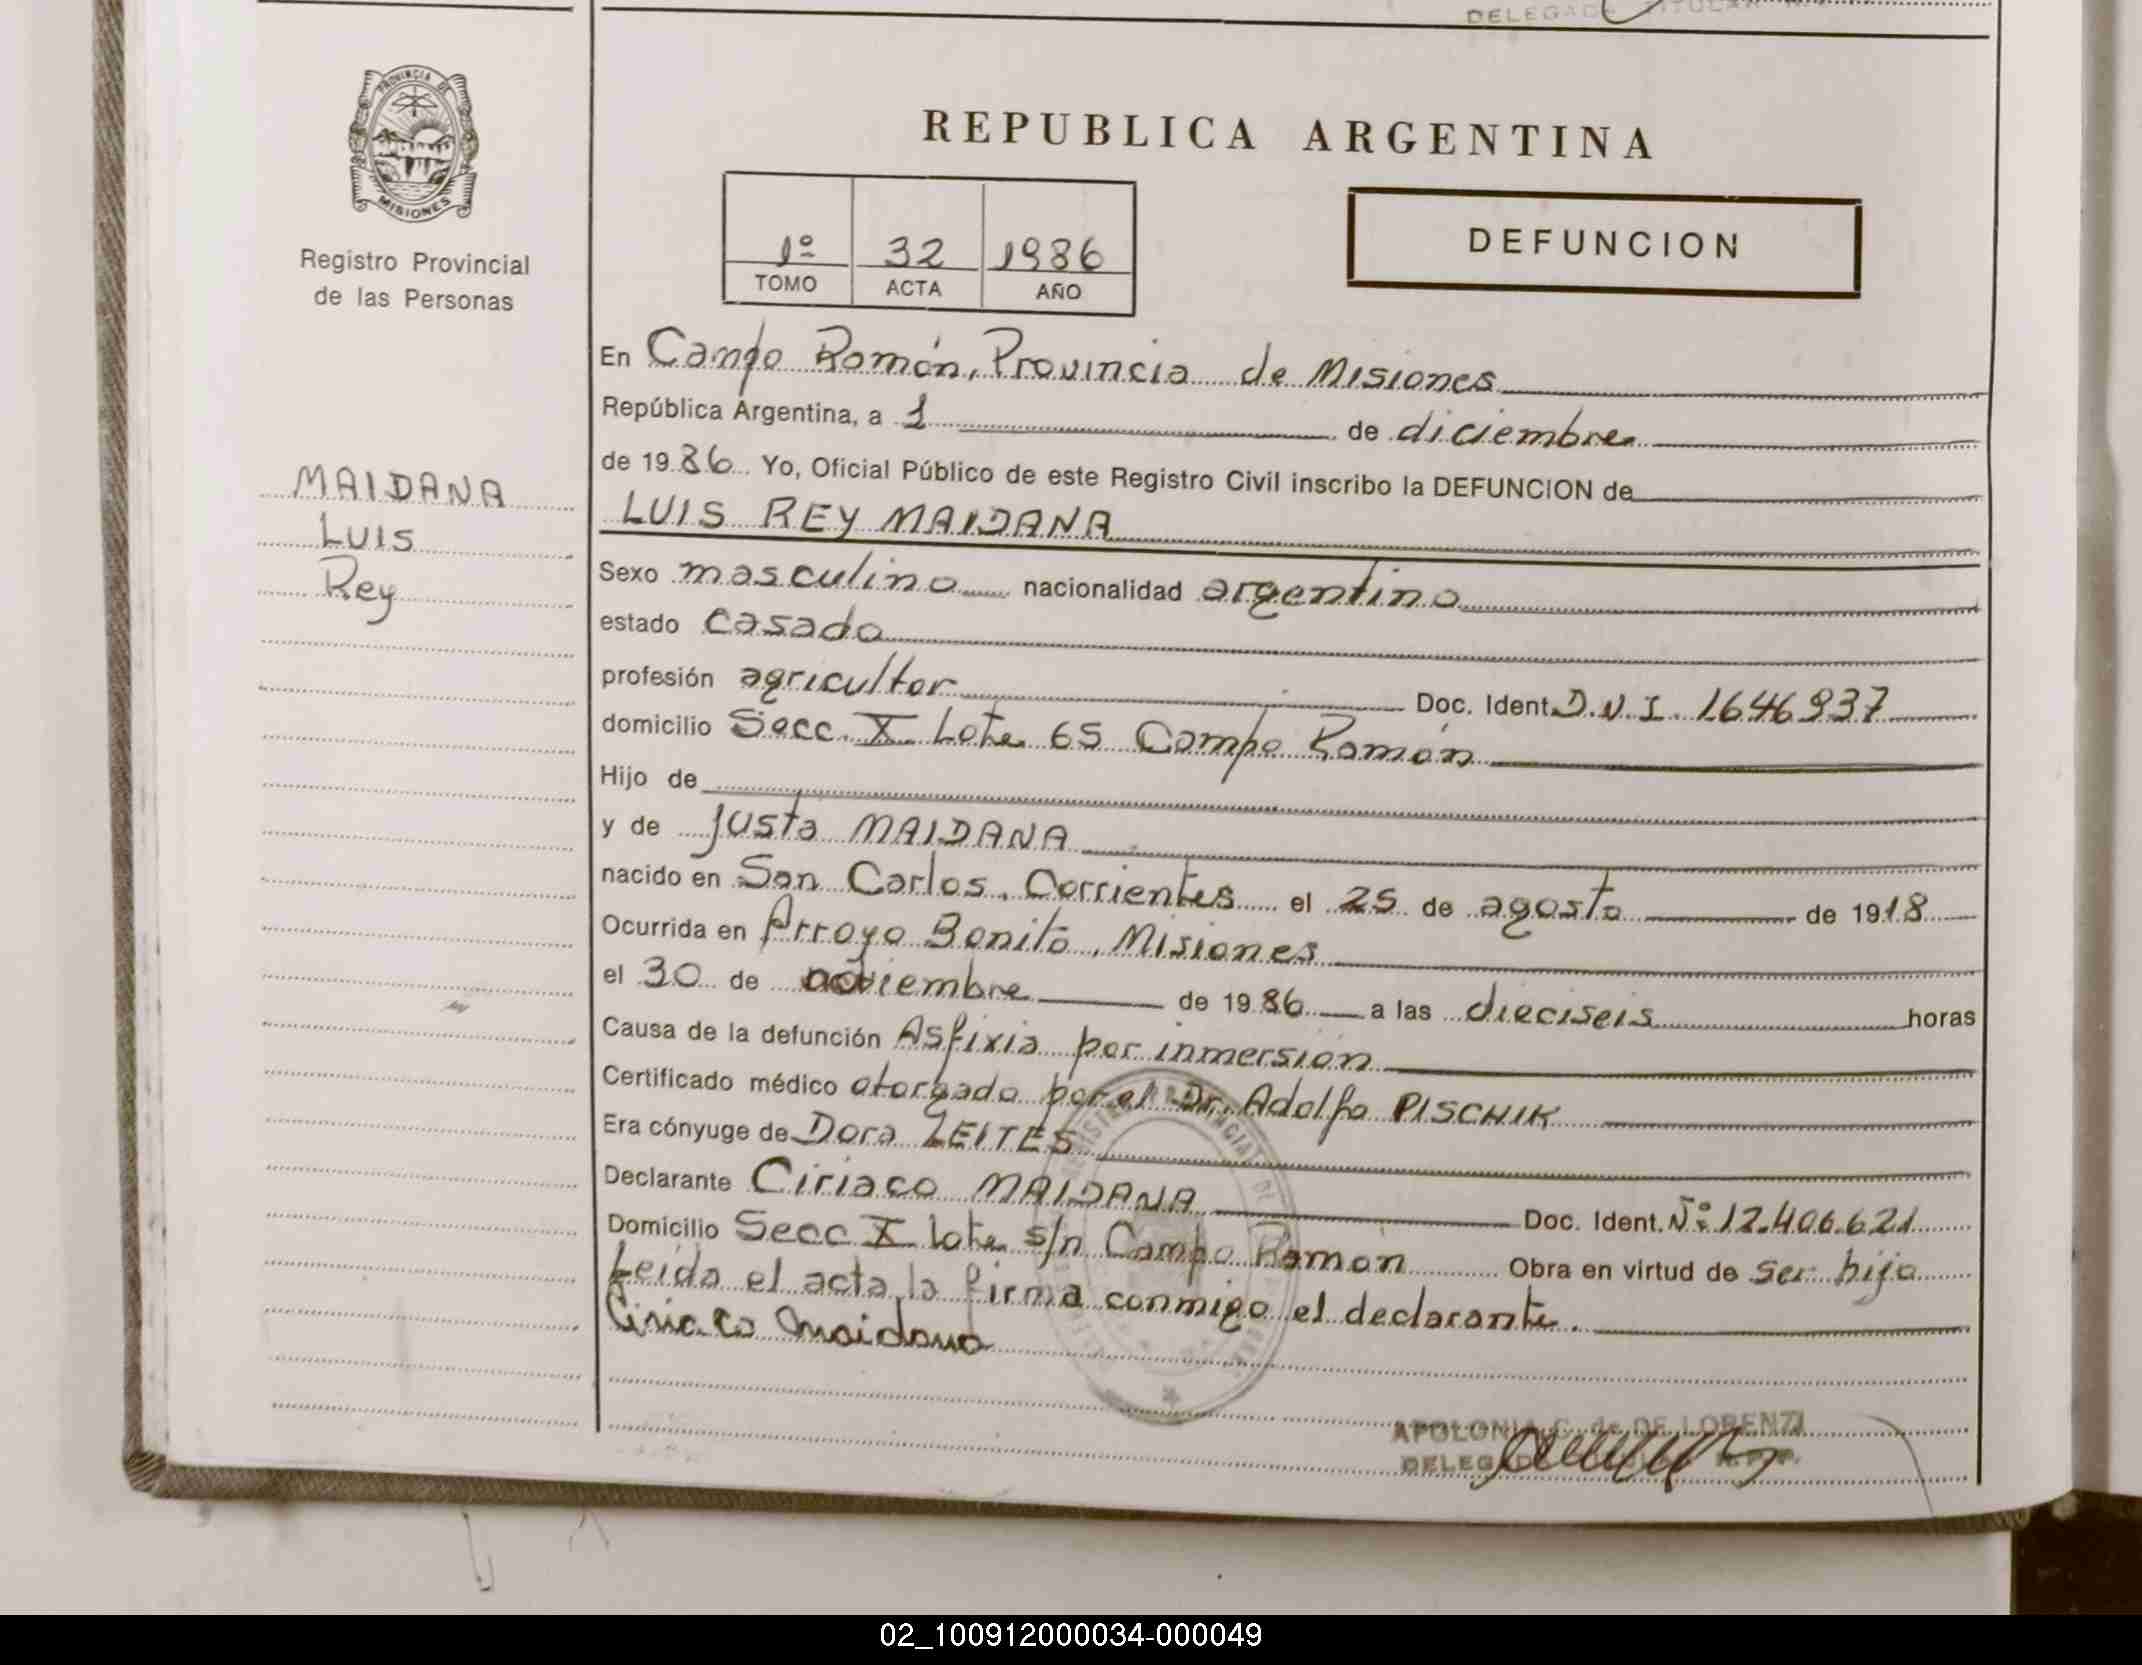 DELEGADA TITULAR
PROVINCIA DE
MISIONES
Registro Provincial
de las Personas
REPUBLICA ARGENTINA
1º 32 1986
TOMO ACTA AÑO
DEFUNCION
En Campo Ramón, Provincia de Misiones
República Argentina, a 1 de diciembre
de 1986 Yo, Oficial Público de este Registro Civil inscribo la DEFUNCION de
MAIDANA
LUIS
Rey
LUIS REY MAIDANA
Sexo masculino nacionalidad argentino
estado casado
profesión agricultor Doc. Ident. D.N.I. 1646937
domicilio Secc. X Lote 65 Campo Ramón
Hijo de
y de Justa MAIDANA
nacido en San Carlos, Corrientes el 25 de agosto de 1918
Ocurrida en Arroyo Bonito, Misiones
el 30 de noviembre de 1986 a las dieciseis horas
Causa de la defunción Asfixia por inmersión
Certificado médico otorgado por el Dr. Adolfo PISCHIK
Era cónyuge de Dora LEITES
Declarante Ciriaco MAIDANA Doc. Ident. Nº 12.406.621
Domicilio Secc X lote s/n Campo Ramon Obra en virtud de ser hijo
Leída el acta, la firma conmigo el declarante.
Ciriaco Maidana
APOLONIA C. de DE LORENZI
R.P.P.
02_100912000034-000049